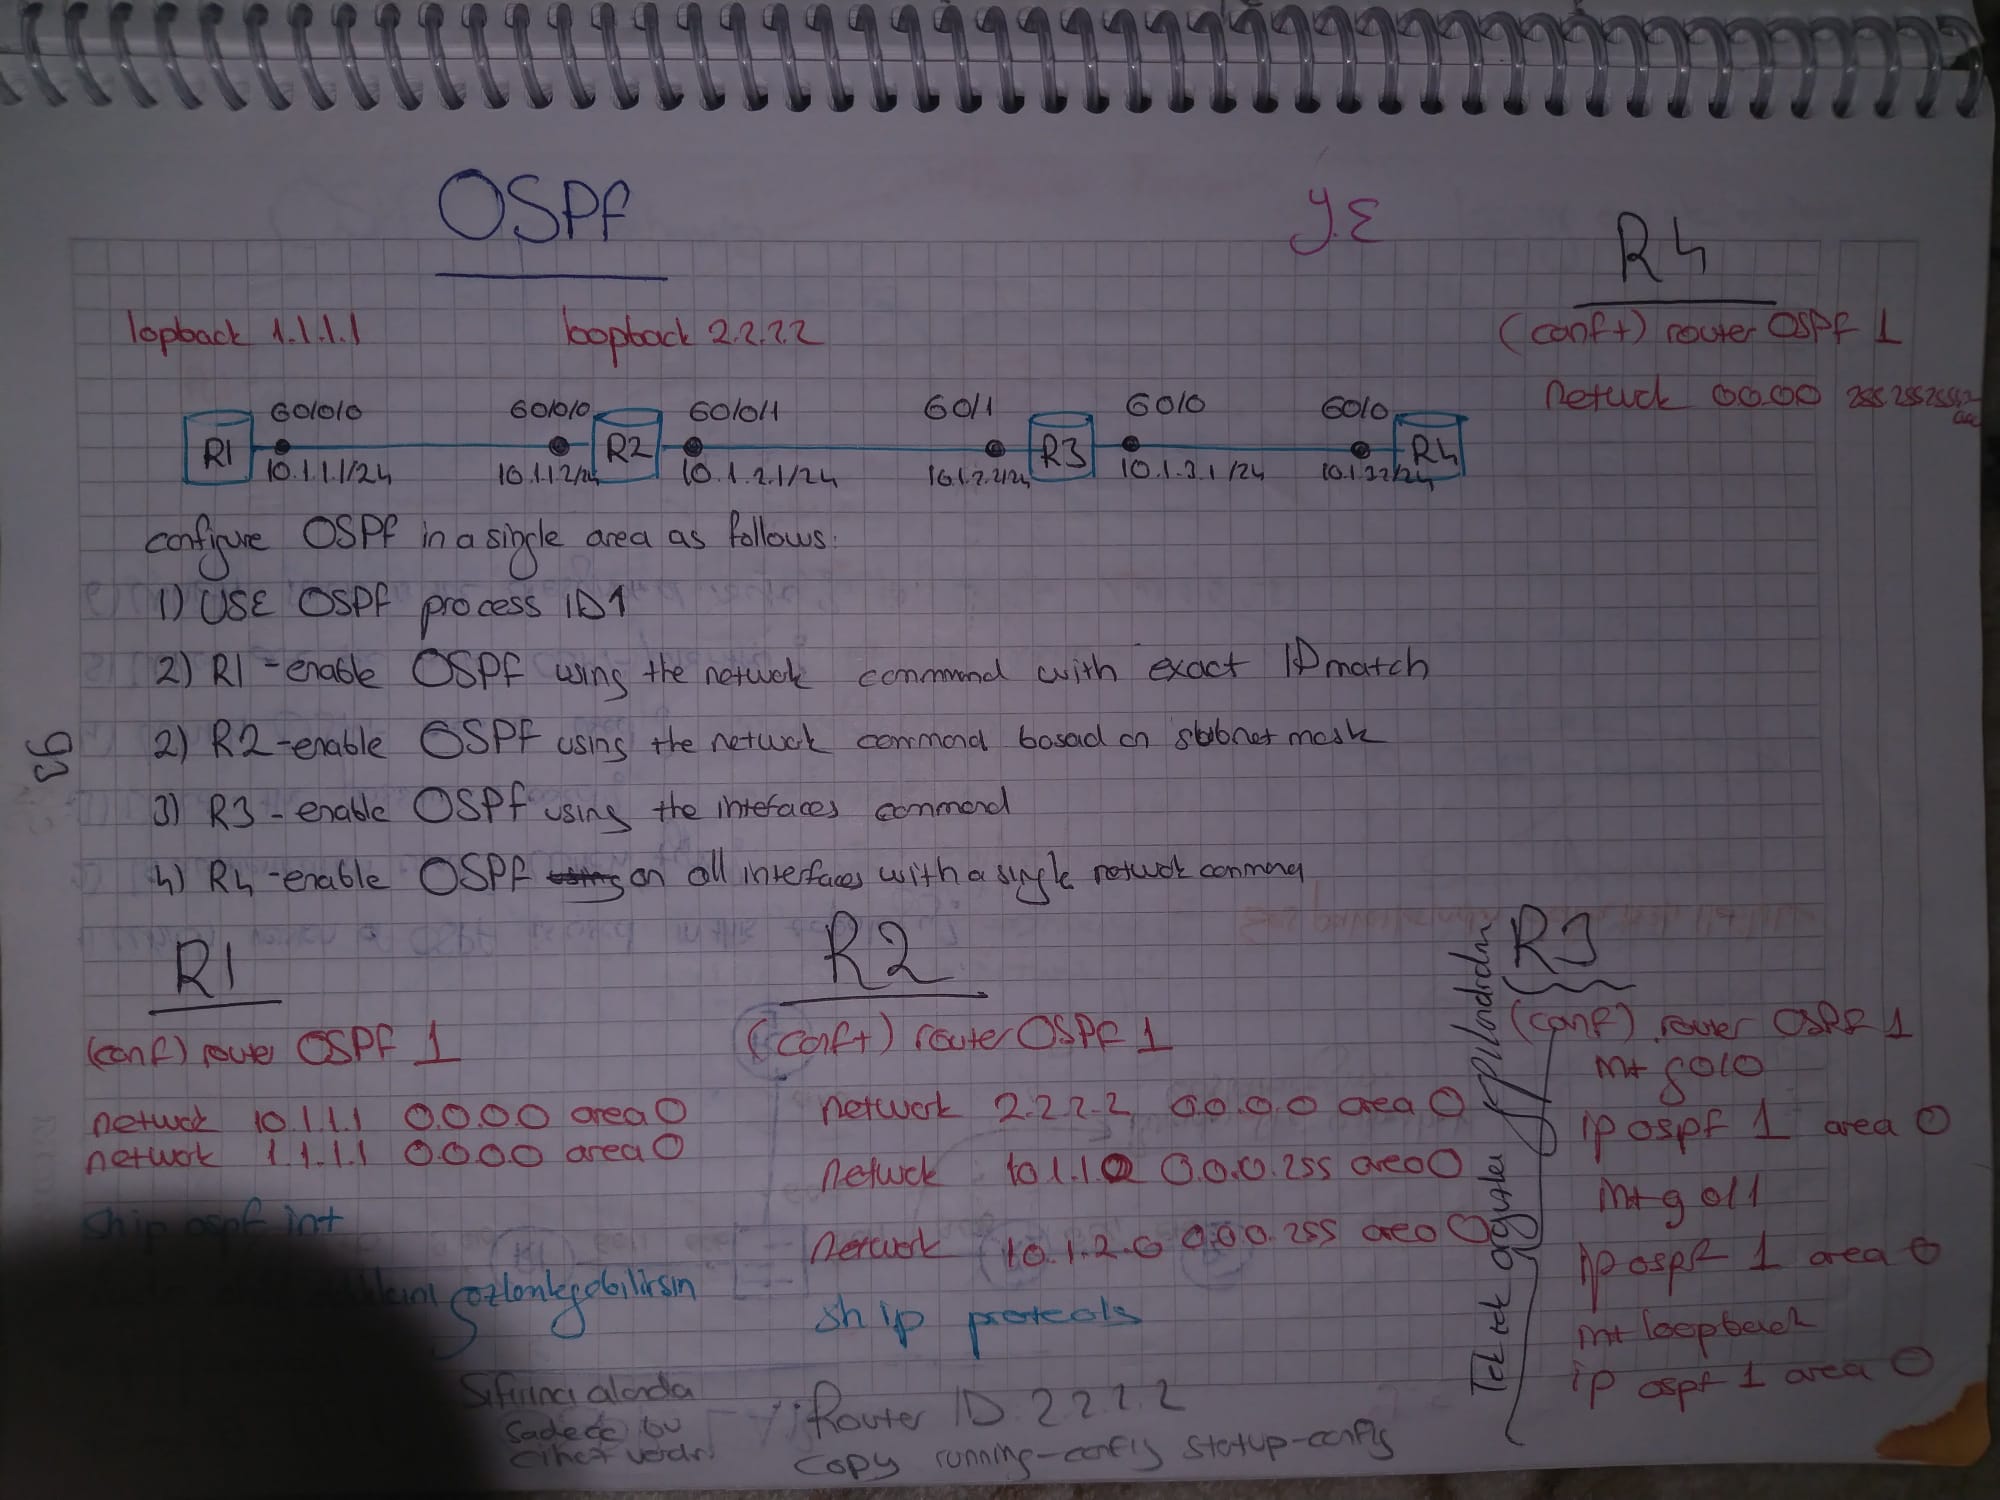 OSPF
Y.E
R4
lopback 1.1.1.1
loopback 2.2.2.2
(conft) router OSPF 1
Network 00.00 255 255 255 2
G0/0/0
G0/0/0
G0/0/1
G0/1
G0/0
G0/0
R1
R2
R3
R4
10.1.1.1/24
10.1.1.2/24
10.1.2.1/24
10.1.2.2/24
10.1.3.1/24
10.1.3.2/24
configure OSPF in a single area as follows:
1) USE OSPF process ID1
2) R1 - enable OSPF using the network commond with exact IP match
2) R2 - enable OSPF using the network commond bosad on subnet mask
3) R3 - enable OSPF using the intefaces commond
4) R4 - enable OSPF using on all interfaces with a single network commond
93
R1
(conf) router OSPF 1
network 10.1.1.1 0.0.0.0 area 0
network 1.1.1.1 0.0.0.0 area 0
sh ip ospf int
gozlonkyobilirsin
Sıfırıncı alanda
Sadece bu
cihaz vardır.
R2
(conft) router OSPF 1
network 2.2.2.2 0.0.0.0 area 0
Network 10.1.1.0 0.0.0.255 area 0
Network 10.1.2.0 0.0.0.255 area 0
sh ip protcols
Router ID 2.2.2.2
copy running-config startup-config
Tek tek arayüzler yapılandırdım
R3
(conf) router OSPF 1
int g0/0
ip ospf 1 area 0
int g 0/1
ip ospf 1 area 0
int loopback
ip ospf 1 area 0